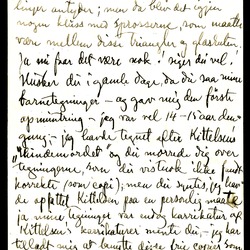 linger antyder; men da blev det igjen
nogen kluss med sprosserne, som maatte
være mellem disse triangler av glasruten.
Ja nu faar det være nok! siger du vel.
Husker du i gamle dage, da du saa mine
barnetegninger – og gav mig den første
opmuntring – jeg var vel 14–15 aar den-
gang; – jeg havde tegnet efter Kittelsens
"Hundemordet" og du morrede dig over
tegningerne, som du vistnok ikke fandt
korrekte (som copi); men du syntes, jeg hav-
de opfattet Kittelsen paa en personlig maate
ja mine tegninger var endog karrikatur af
Kittelsens karikaturer mente du, – jeg har
tilladt mig at benytte disse frie copier som